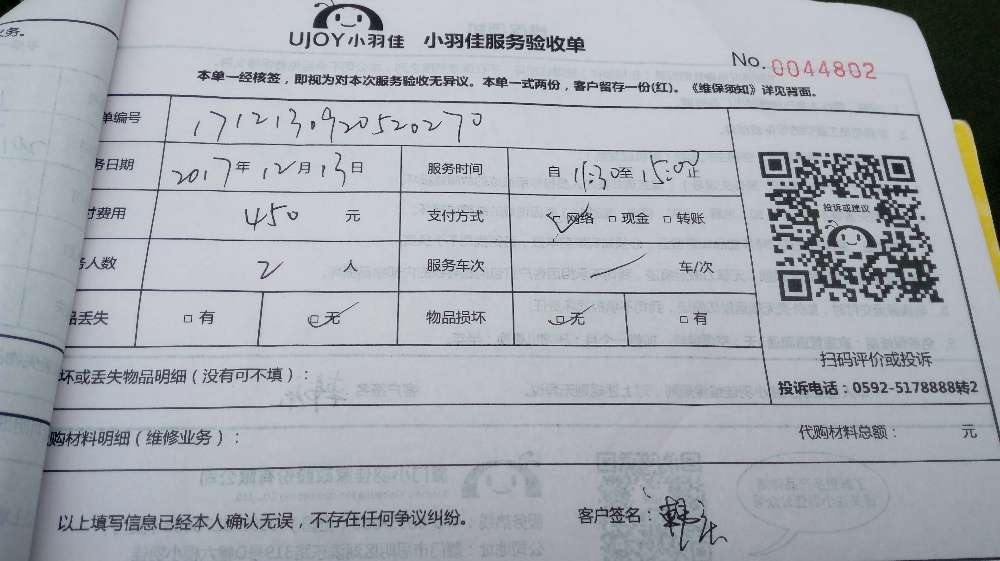 业务。
UJOY小羽佳 小羽佳服务验收单
No. 0044802
本单一经核签，即视为对本次服务验收无异议。本单一式两份，客户留存一份(红)。《维保须知》详见背面。
单编号 1712130920520270
务日期 2017年12月13日 服务时间 自 11:30至15:00止
付费用 450 元 支付方式 网络 现金 转账
务人数 2 人 服务车次 车/次
品丢失 有 无 物品损坏 无 有
投诉或建议
扫码评价或投诉
投诉电话：0592-5178888转2
坏或丢失物品明细（没有可不填）：
购材料明细（维修业务）： 代购材料总额： 元
以上填写信息已经本人确认无误，不存在任何争议纠纷。 客户签名：